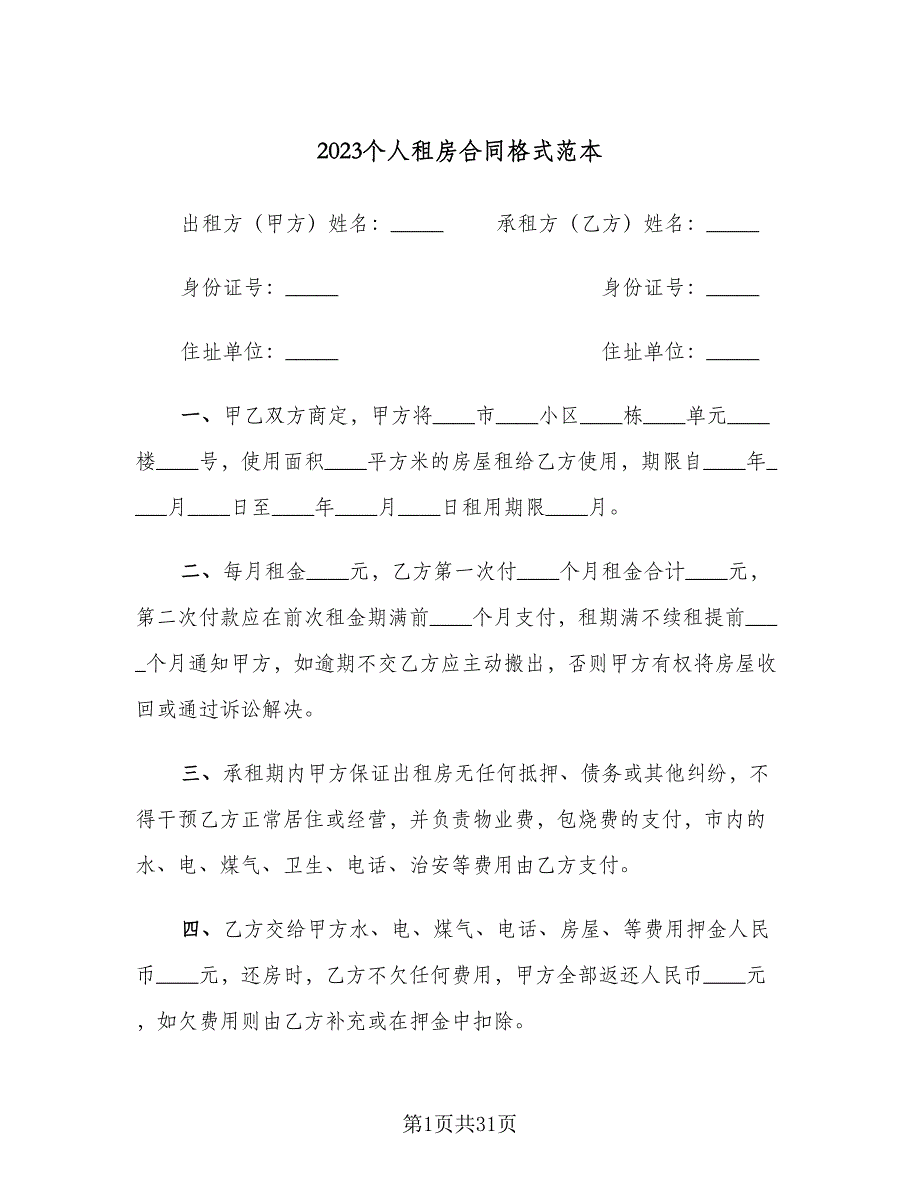 2023个人租房合同格式范本
出租方（甲方）姓名：_____ 承租方（乙方）姓名：_____
身份证号：_____ 身份证号：_____
住址单位：_____ 住址单位：_____
一、甲乙双方商定，甲方将____市____小区____栋____单元____
楼____号，使用面积____平方米的房屋租给乙方使用，期限自____年_
___月____日至____年____月____日租用期限____月。
二、每月租金____元，乙方第一次付____个月租金合计____元，
第二次付款应在前次租金期满前____个月支付，租期满不续租提前___
_个月通知甲方，如逾期不交乙方应主动搬出，否则甲方有权将房屋收
回或通过诉讼解决。
三、承租期内甲方保证出租房无任何抵押、债务或其他纠纷，不
得干预乙方正常居住或经营，并负责物业费，包烧费的支付，市内的
水、电、煤气、卫生、电话、治安等费用由乙方支付。
四、乙方交给甲方水、电、煤气、电话、房屋、等费用押金人民
币____元，还房时，乙方不欠任何费用，甲方全部返还人民币____元
，如欠费用则由乙方补充或在押金中扣除。
第1页共31页